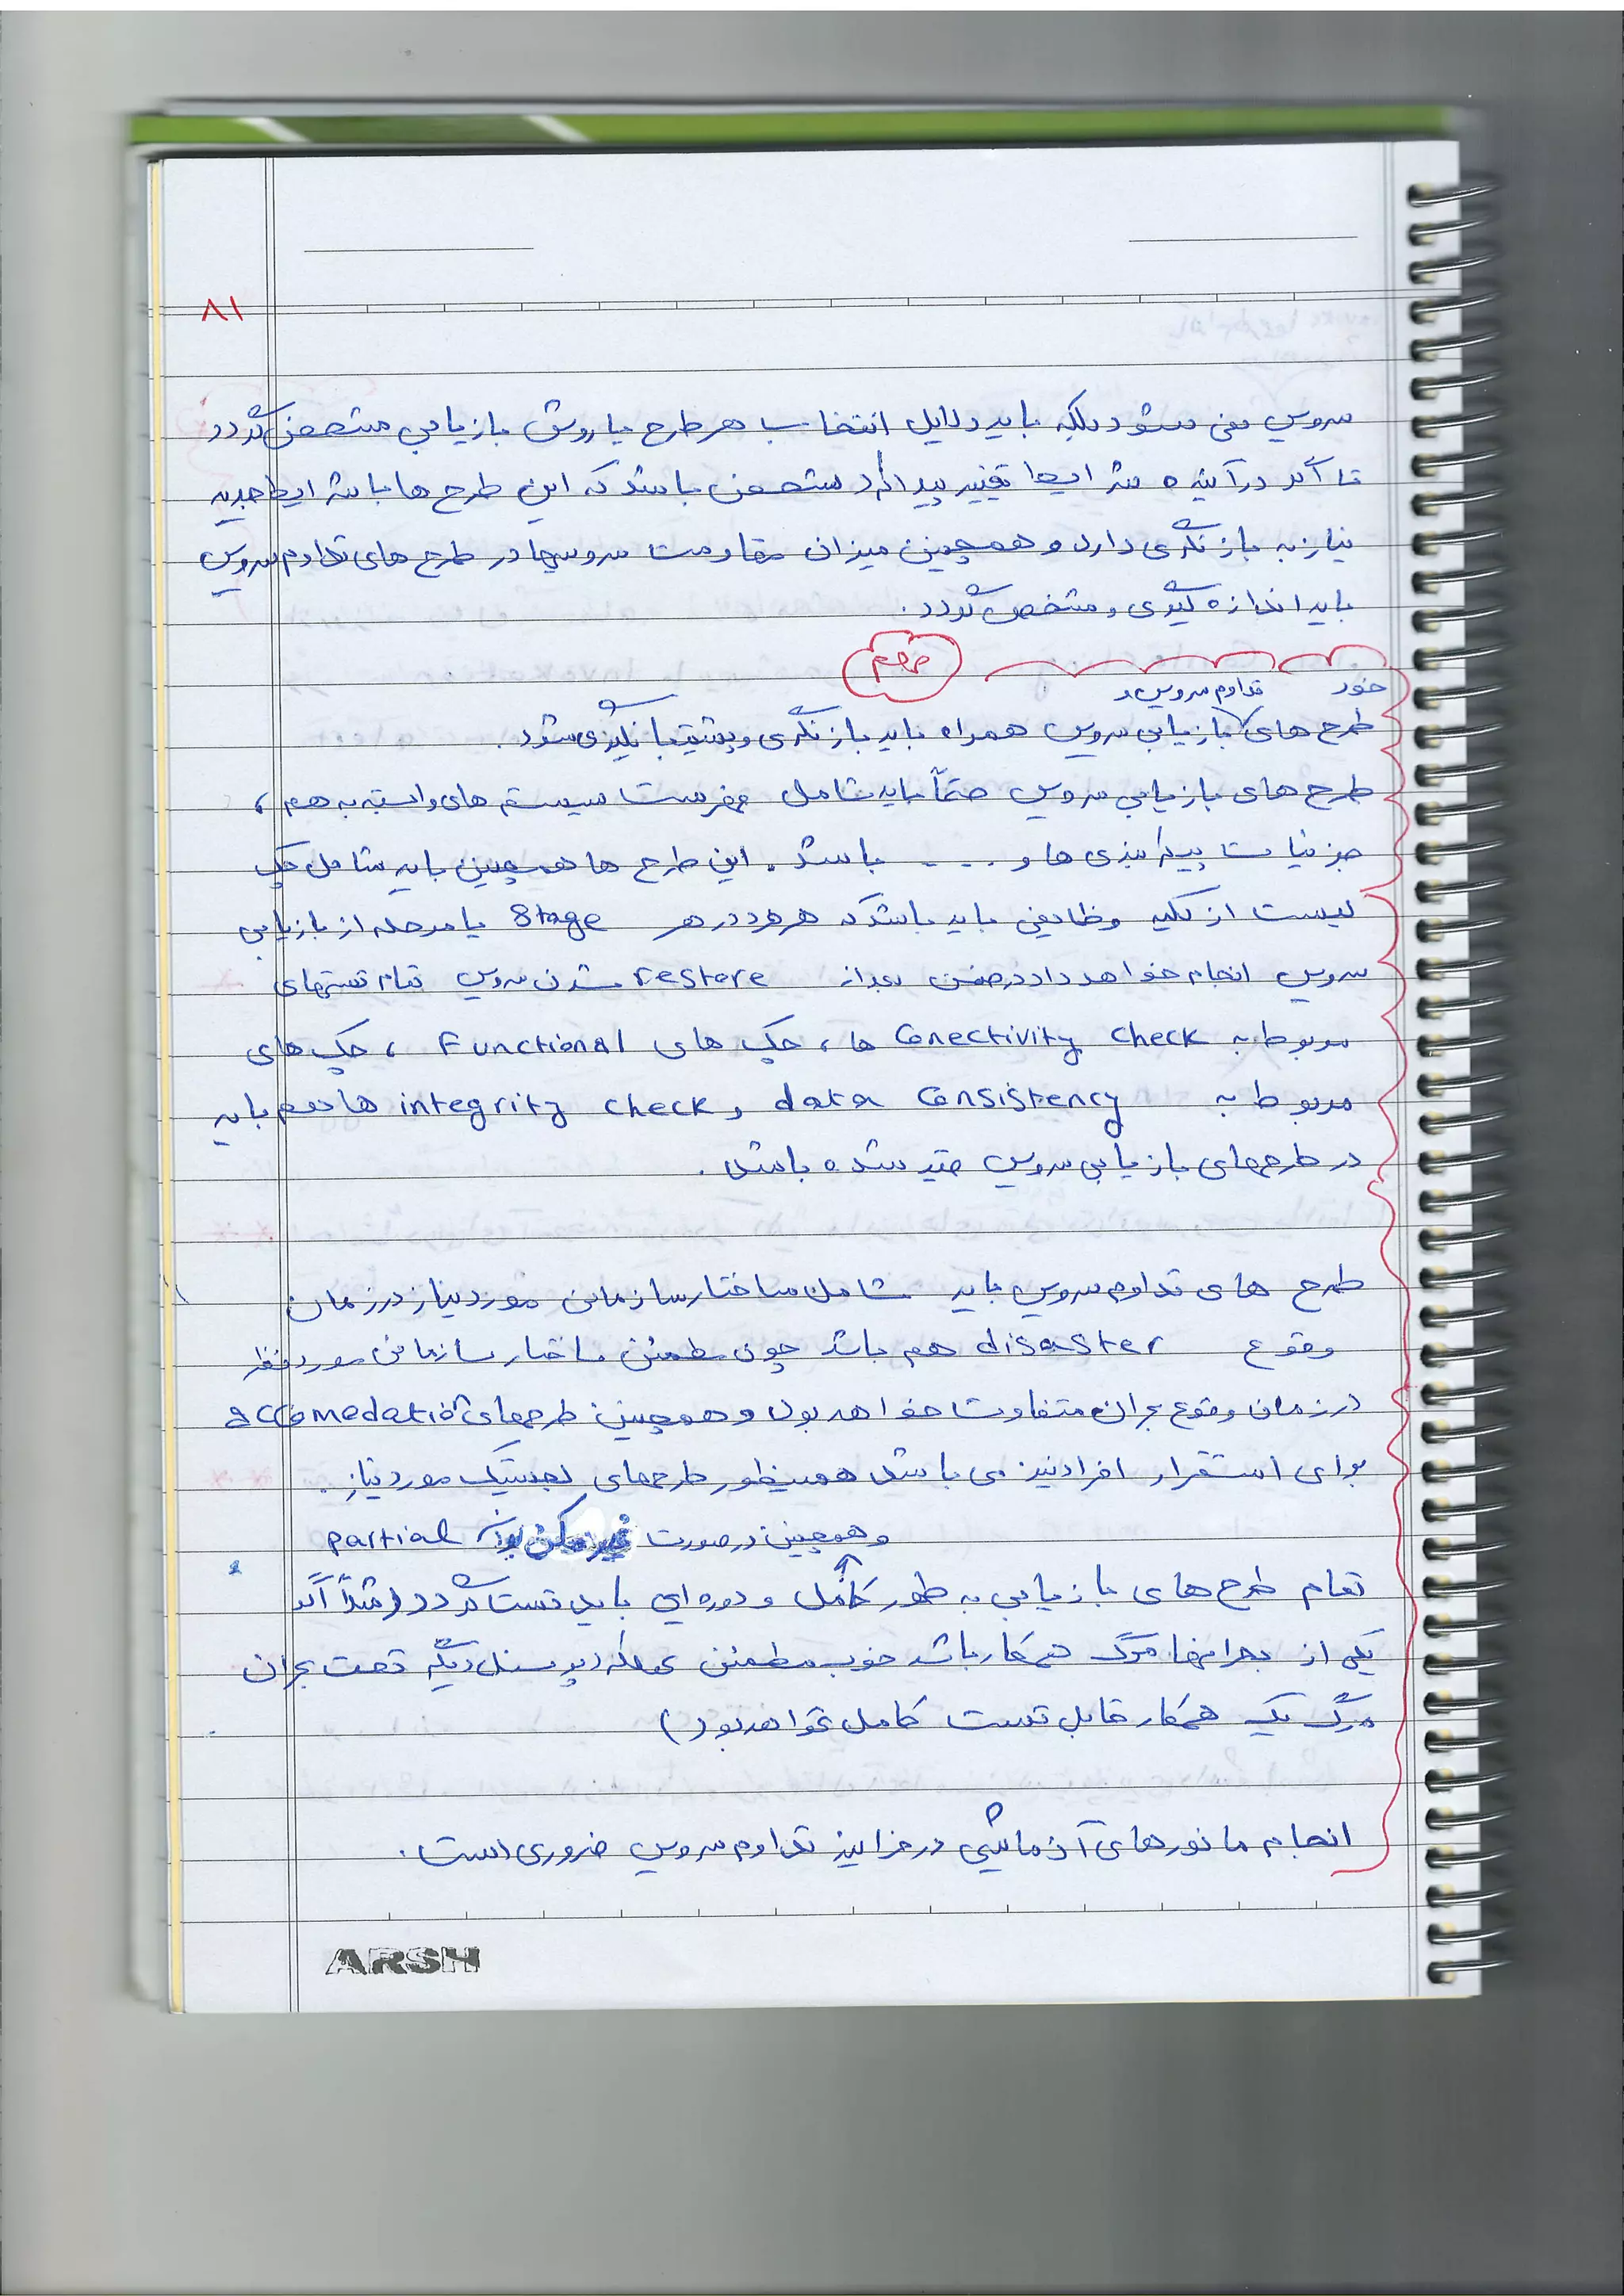 ۸۱
سرویس می شود بلکه باید دلایل انتخاب هر طرح یا روش بازیابی مشخص گردد
تا اگر در آینده شرایط تغییر پیدا کرد مشخص باشد که این طرح ها با شرایط جدید
نیاز به بازنگری دارد و همچنین میزان مقاومت سرویسها در طرح های تداوم سرویس
باید اندازه گیری و مشخص گردد.
مهم
خود تداوم سرویس و
طرح های بازیابی سرویس همراه باید بازنگری و پشتیبانگیری شود.
طرح های بازیابی سرویس حتماً باید شامل فهرست سیستم های وابسته به هم ،
جزئیات پیکربندی ها و .... باشد. این طرح ها همچنین باید شامل چک
لیست از کلیه وظایفی باید باشد که هر فرد در هر Stage یا مرحله از بازیابی
سرویس انجام خواهد داد در ضمن بعد از restore شدن سرویس تمام تستهای
مربوط به Conectivity check ها ، چک های Functional ، چک های
مربوط به data Consistency و integrity check ها هم باید
در طرحهای بازیابی سرویس قید شده باشد.
طرح های تداوم سرویس باید شامل ساختار سازمانی مورد نیاز در زمان
وقوع disaster هم باشد چون مطمئن ساختار سازمانی مورد نظر
در زمان وقوع بحران متفاوت خواهد بود و همچنین طرحهای accomedation
برای استقرار افراد نیز می باشد همینطور طرحهای لجستیک مورد نیاز.
و همچنین در صورت غیر ممکن بودن partial
تمام طرح های بازیابی به طور کامل و دوره ای باید تست گردد (مثلاً اگر
یکی از بحرانها مرگ همکار باشد خوب مطمئن عملکرد پرسنل دیگه تحت بحران
مرگ یک همکار قابل تست کامل نخواهد بود)
انجام مانورهای آزمایشی در فرایند تداوم سرویس ضروری است.
ARSH